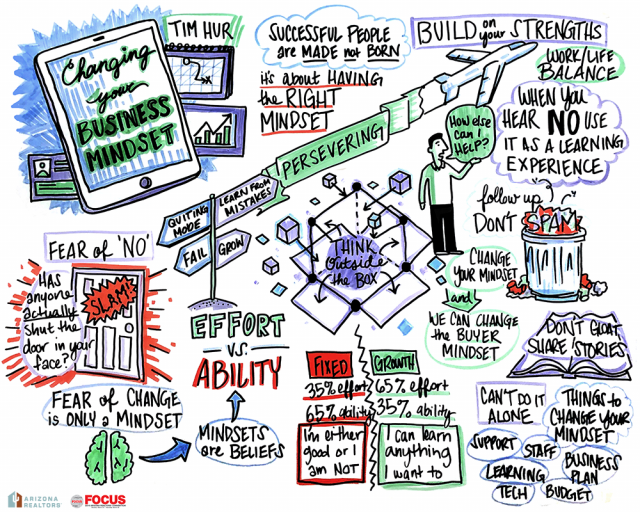 TIM HUR
Changing
your
BUSINESS
MINDSET
SUCCESSFUL PEOPLE
are MADE not BORN
it's about HAVING
the RIGHT
MINDSET
BUILD on
your STRENGTHS
WORK/LIFE
BALANCE
PERSEVERING
How else
can I
HELP?
WHEN YOU
HEAR NO USE
IT AS A LEARNING
EXPERIENCE
follow up
DON'T
SPAM
QUITING
MODE
LEARN FROM
MISTAKES
FAIL
GROW
THINK
Outside
the BOX
FEAR of 'NO'
HAS
anyone
actually
shut the
door in your
face?
SLAM!
EFFORT
VS.
ABILITY
CHANGE
YOUR MINDSET
and
WE CAN CHANGE
the BUYER
MINDSET
DON'T GLOAT
SHARE STORIES
FEAR OF CHANGE
is ONLY a MINDSET
MINDSETS
are BELIEFS
FIXED
35% effort
65% ability
I'm either
good or I
am NOT
GROWTH
65% effort
35% ability
I can learn
anything
I want to
CAN'T DO IT
ALONE
THINGS to
CHANGE YOUR
MINDSET
SUPPORT
STAFF
LEARNING
BUSINESS
PLAN
TECH
BUDGET
ARIZONA
REALTORS
FOCUS